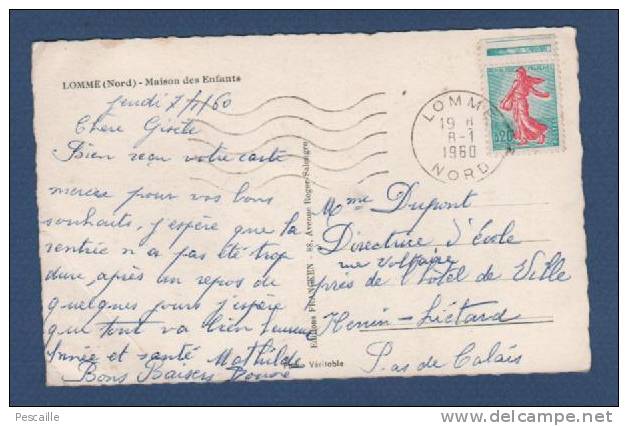 LOMME (Nord) - Maison des Enfants
Jeudi 7/1/60
Chère Gisèle
Bien reçu votre carte
mercie pour vos bons
souhaits, j'espère que la
rentrée n'a pas été trop
dure, après un repos de
quelques jours j'espère
que tout va bien
Année et santé Mathilde
Bons Baisers
Editions FRANCKEN - 88, Avenue Roger-Salengro
Véritable
LOMME
19 H
8-1
1960
NORD
0,20
Mme Dupont
Directrice d'école
rue Voltaire
près de l'hôtel de Ville
Henin-Liétard
P. as de Calais
Pescaille
www.delcampe.net